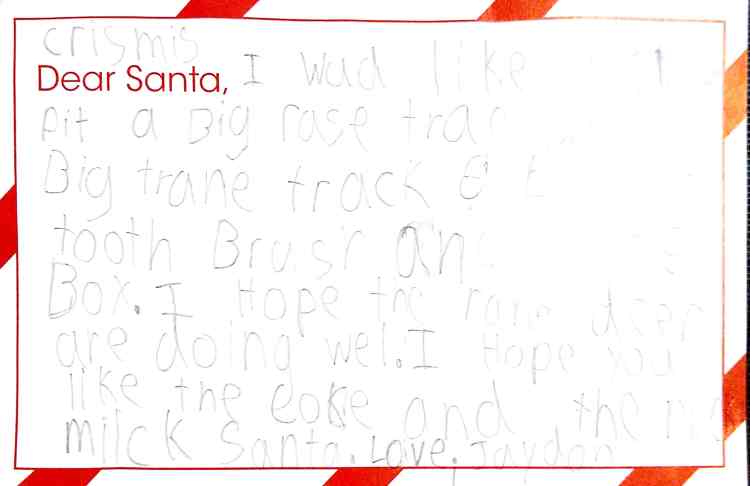 crismis
Dear Santa, I wud like
pit a Big rase
Big trane track
tooth Brush and
Box. I Hope the rane deer
are doing wel. I Hope you
like the coke and the
milck Santa. Love. Jaydon